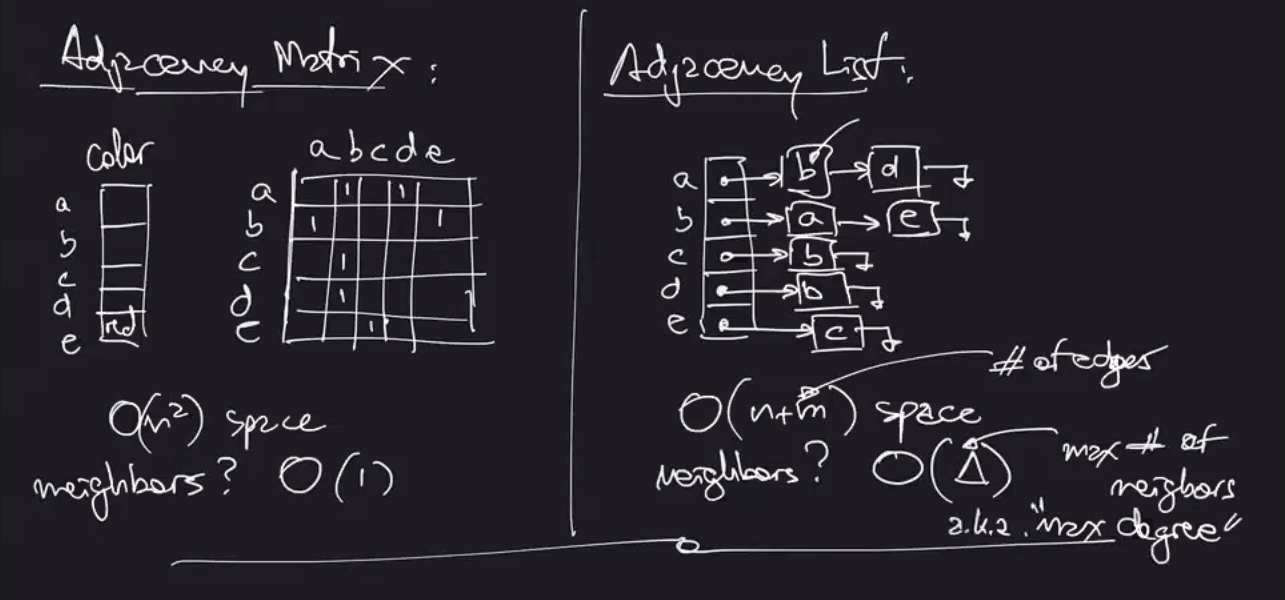 Adjacency Matrix:
color
a
b
c
d
e
red
a b c d e
a 1 1
b 1 1
c 1
d 1
e 1
O(n²) space
neighbors? O(1)
Adjacency List:
a b d
b a e
c b
d b
e c
# of edges
O(n+m) space
neighbors? O(Δ)
max # of
neigbors
a.k.a. "max degree"